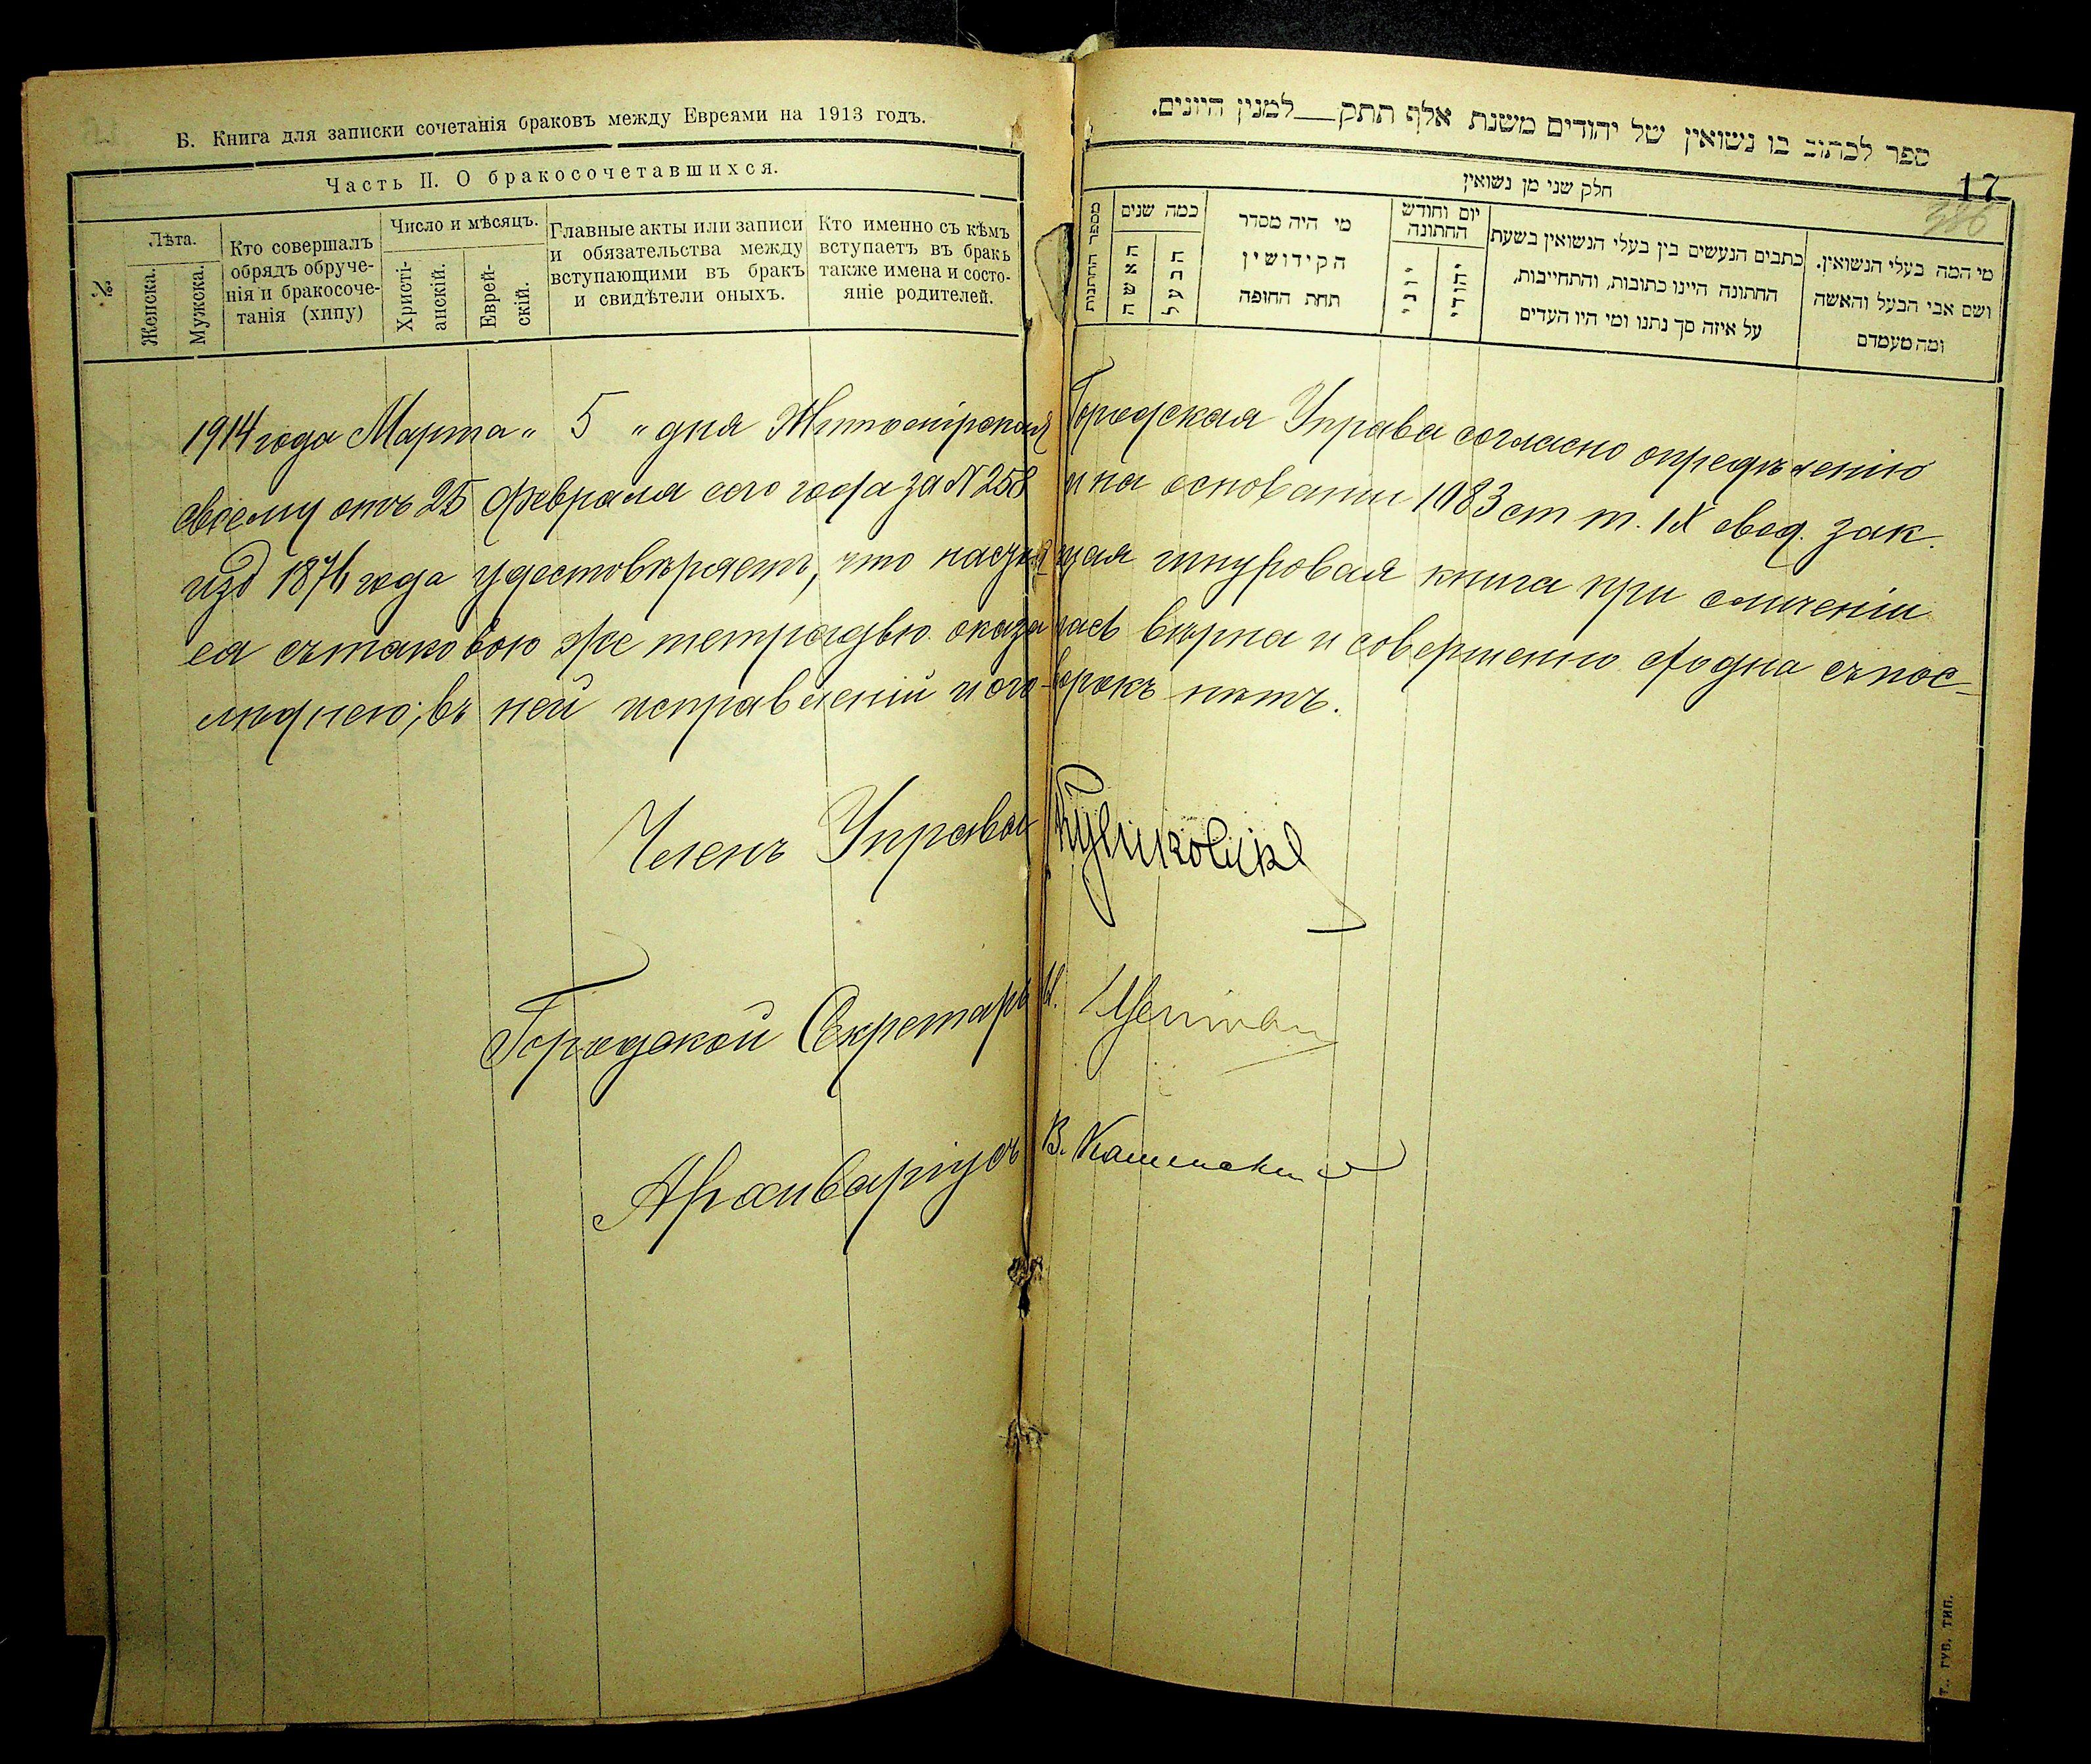 Б. Книга для записки сочетанія браковъ между Евреями на 1913 годъ.
Часть II. О бракосочетавшихся.
№
Лѣта.
Женска.
Мужска.
Кто совершалъ
обрядъ обруче-
нія и бракосоче-
танія (хипу)
Число и мѣсяцъ.
Христі-
анскій.
Еврей-
скій.
Главные акты или записи
и обязательства между
вступающими въ бракъ
и свидѣтели оныхъ.
Кто именно съ кѣмъ
вступаетъ въ бракъ
также имена и состо-
яніе родителей.
ספר לכתוב בו נשואין של יהודים משנת אלף תתק__למנין היונים.
17
386
חלק שני מן נשואין
מספר החתנות
כמה שנים
האשה
הבעל
מי היה מסדר
הקידושין
תחת החופה
יום וחודש
החתונה
יוני
יהודי
כתבים הנעשים בין בעלי הנשואין בשעת
החתונה היינו כתובות, והתחייבות,
על איזה סך נתנו ומי היו העדים
מי המה בעלי הנשואין.
ושם אבי הבעל והאשה
ומה מעמדם
1914 года Марта „ 5 „ дня Житомірская Городская Управа согласно опредѣленію
своему отъ 25 февраля сего года за N 258 и на основаніи 1083 ст т. IX свод. зак.
изд 1876 года удостовѣряетъ, что настоящая шнуровая книга при сличеніи
ея съ таковою же тетрадью оказалась вѣрна и совершенно сходна съ пос-
лѣднею; въ ней исправленій и ого-ворокъ нѣтъ.
Членъ Управы
Городской Секретарь
Архиваріусъ В. Каменскій
Т.. ГУБ. ТИП.